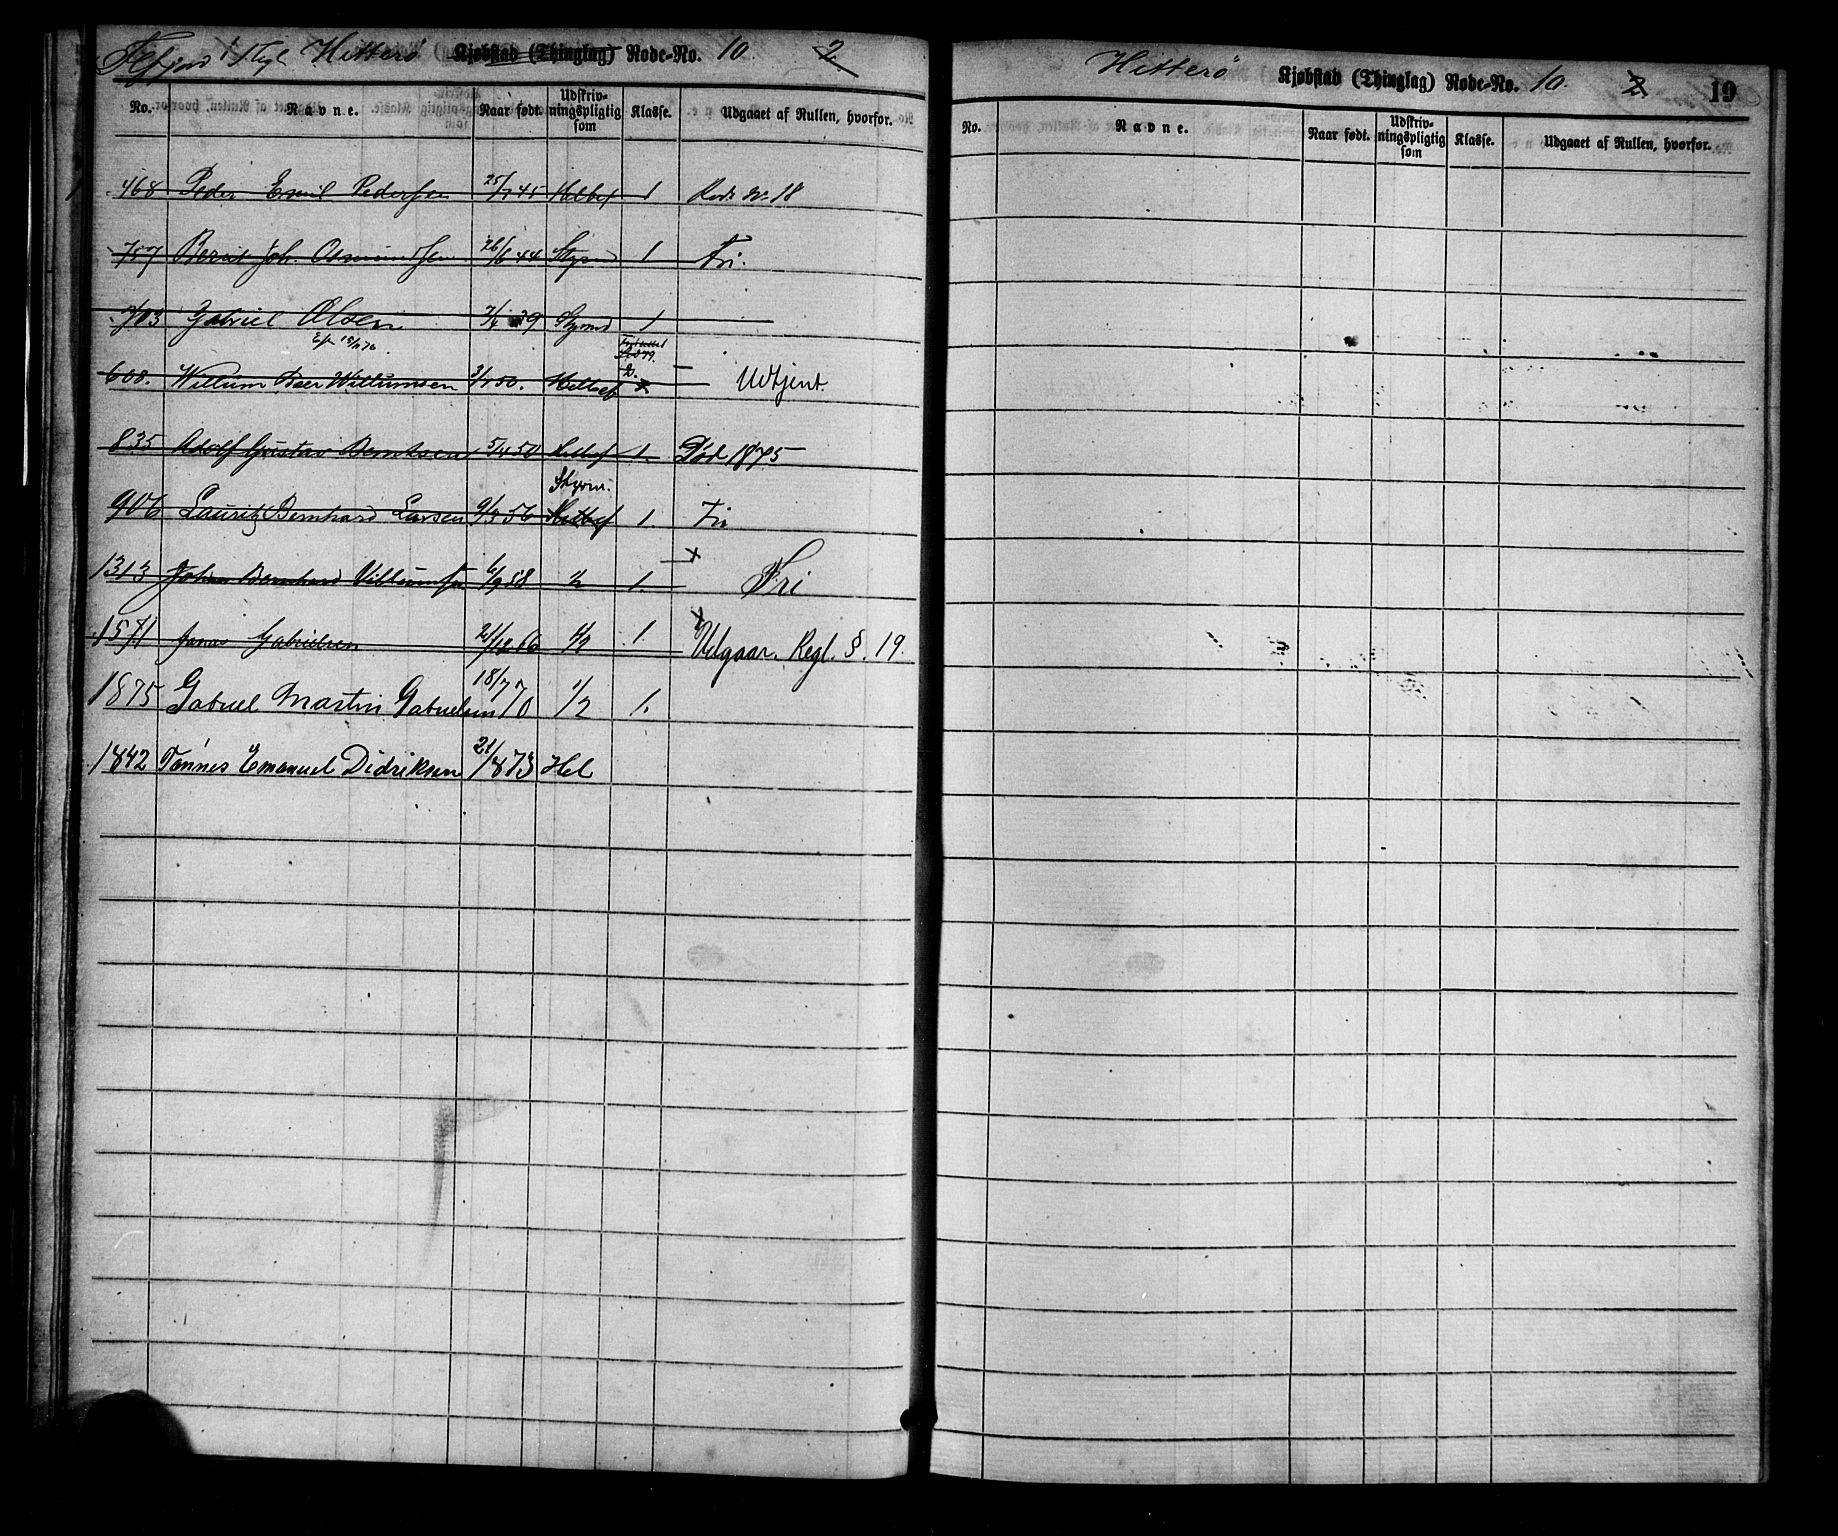 Hitterø Kjøbstad (Thinglag) Rode-No. 10. 2.
No. Navne. Naar født. Udskriv-ningspligtig som Klasse. Udgaaet af Rullen, hvorfor.
468 Peder Emil Pedersen 25/7 45 Helbef 1 Rode No 18
Bernt Joh. Osmundsen 26/6 44 Styrm 1 Fri.
703 Gabriel Olsen 39 Styrmd 1
608. Willum Beer Willumsen Helbef Udtjent.
835 Adolf Gustav Berntsen 5/4 50 Helbef 1. Død 1875
Styrm.
906 Lauritz Bernhard Larsen 9/3 56 Helbef 1. Fri
1313 Johan Bernhard Villumsen 6/9 58 1/2 1. Fri
1571 Jonas Gabrielsen 21/12 66 1/2 1. Udgaar. Regl. §. 19.
1875 Gabriel Martin Gabrielsen 18/7 70 1/2 1.
1842 Tønnes Emanuel Didriksen 21/1 873 Hel
Hitterø Kjøbstad (Thinglag) Rode-No. 10. 2. 19
No. Navne. Naar født. Udskriv-ningspligtig som Klasse. Udgaaet af Rullen, hvorfor.